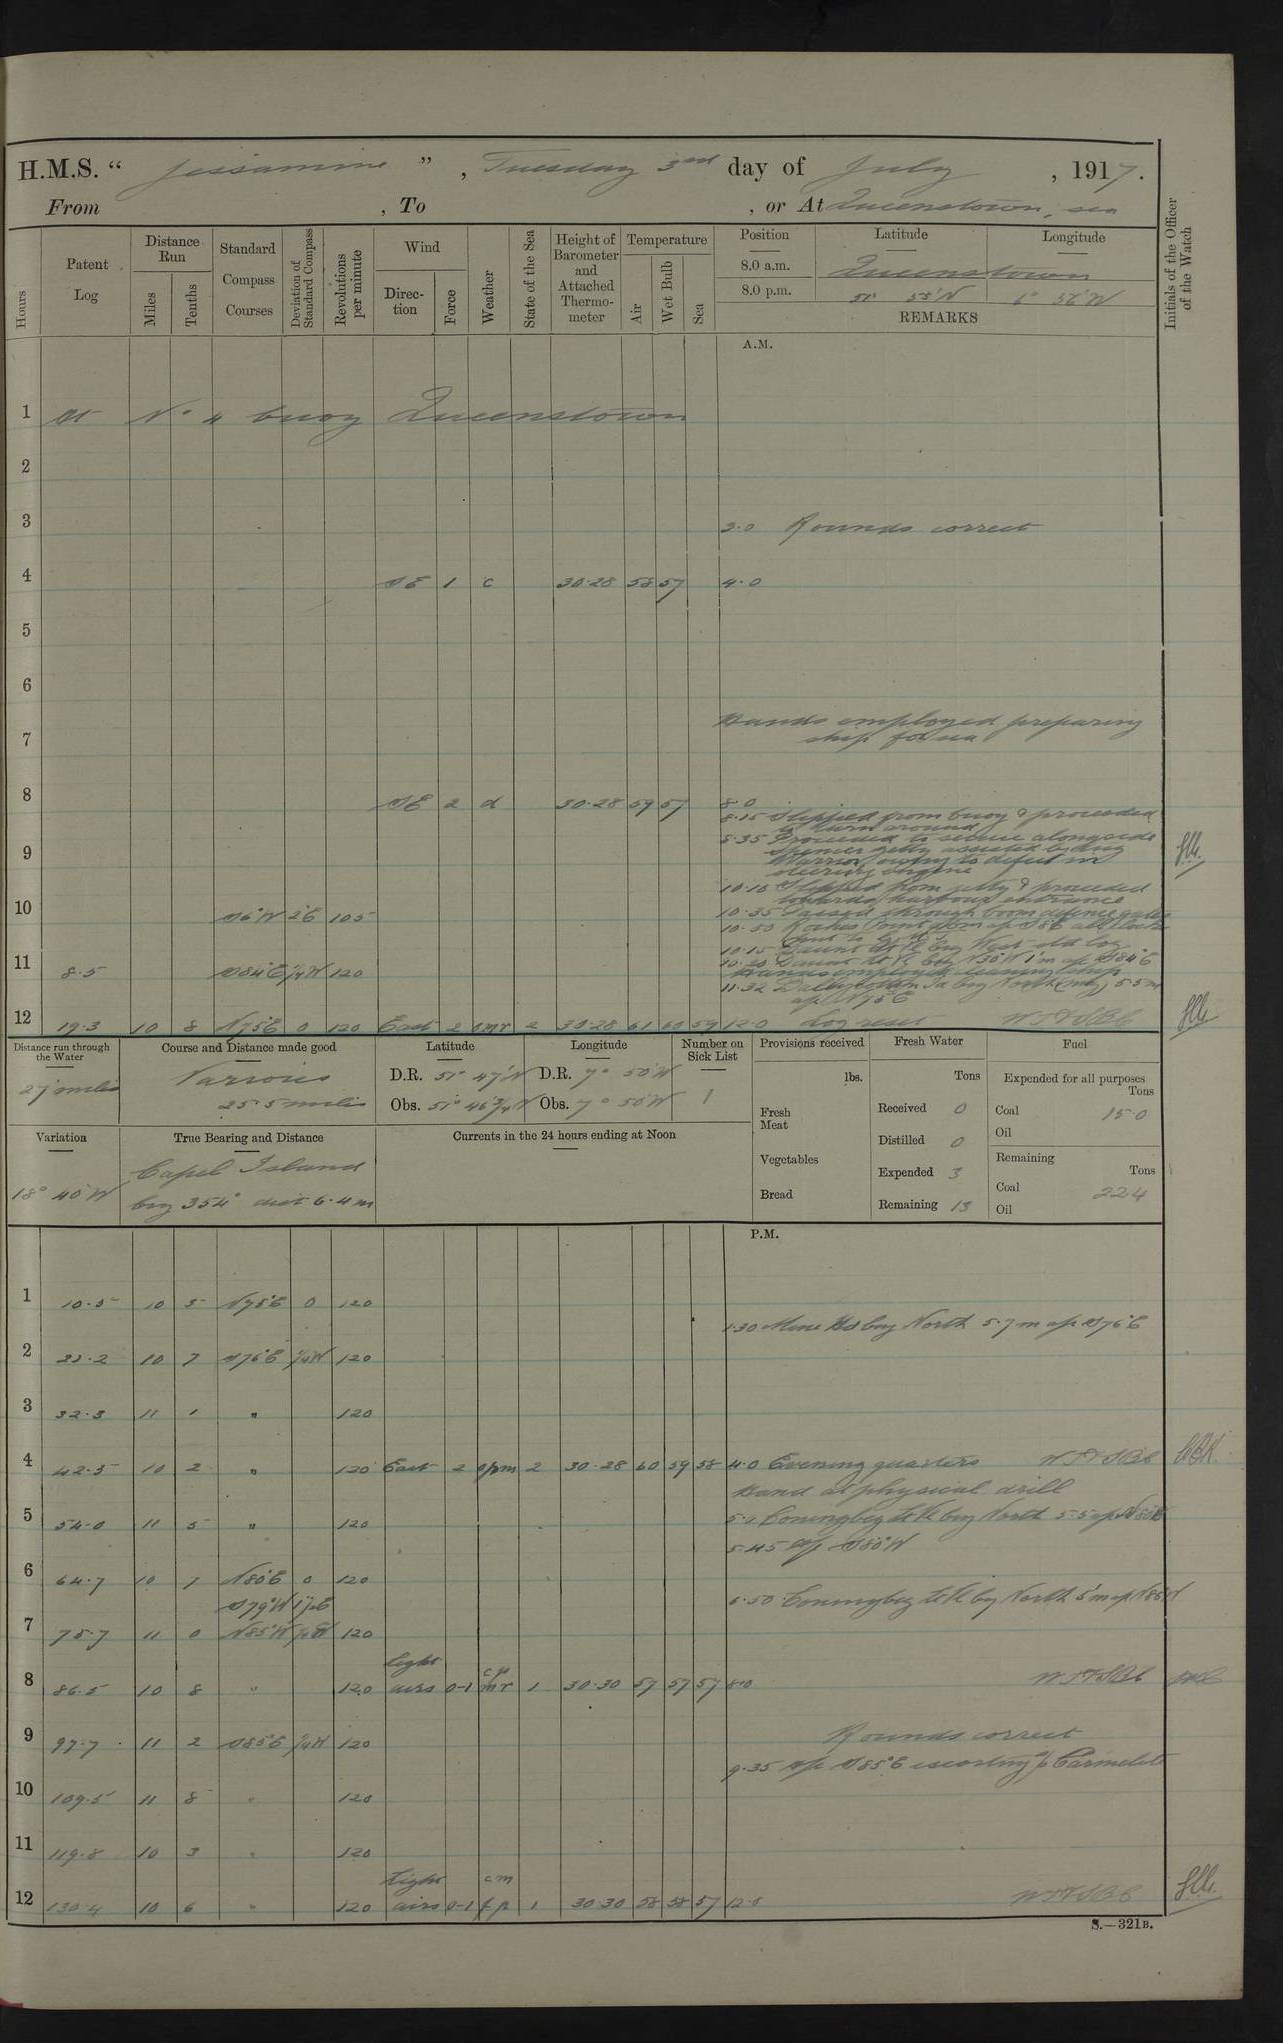 H.M.S. “ Jessamine ” , Tuesday 3rd day of July , 1917.
From , To , or At Queenstown, sea
Hours
Patent Log
Distance Run
Miles
Tenths
Standard Compass Courses
Deviation of Standard Compass
Revolutions per minute
Wind
Direction
Force
Weather
State of the Sea
Height of Barometer and Attached Thermometer
Temperature
Air
Wet Bulb
Sea
Position
Latitude
Longitude
8.0 a.m. Queenstown
8.0 p.m. 51° 55'N 6° 56'W
REMARKS
Initials of the Officer of the Watch
A.M.
1 At No 4 buoy Queenstown
2
3 3.0 Rounds correct
4 SE 1 c 30.28 58 57 4.0
5
6
Hands employed preparing
7 ship for sea
8 SE 2 d 30.28 59 57 8.0
8.15 Slipped from buoy & proceeded
to turn around
8.35 Proceeded to secure alongside
9 Spencer jetty assisted by tug
Warrior owing to defect in
steering engine
10.10 Slipped from jetty & proceeded
towards harbour entrance
10 S6°W 2°E 105 10.35 Passed through boom defence gates
10.50 Roches Point
11 8.5 S84°E ¼W 120
Hands employed cleaning ship
11.32 Ballycotton Id brg North (mag) 5.5 m
a/c N75°E
12 19.3 10 8 N75°E 0 120 East 2 omr 2 30.28 61 60 59 12.0 Log reset
Distance run through the Water
27 miles
Course and Distance made good
Various
25.5 miles
Latitude
D.R. 51° 47'N
Obs. 51° 46¾'N
Longitude
D.R. 7° 50'W
Obs. 7° 50'W
Number on Sick List
1
Provisions received
lbs.
Fresh Meat
Vegetables
Bread
Fresh Water
Tons
Received 0
Distilled 0
Expended 3
Remaining 13
Fuel
Expended for all purposes
Tons
Coal 15.0
Oil
Remaining
Tons
Coal 224
Oil
Variation
18° 40'W
True Bearing and Distance
Capel Island
brg 354° dist 6.4 m
Currents in the 24 hours ending at Noon
P.M.
1 10.5 10 5 N75°E 0 120
1.30 Mine Hd brg North 5.7 m a/c S76°E
2 10 7 S76°E ¼W 120
3 32.3 11 1 " 120
4 42.5 10 2 " 120 East 2 opm 2 30.28 60 59 58 4.0 Evening quarters
Hand at physical drill
5 54.0 11 5 " 120 5.0 Coningbeg Lt Vl brg North 5.5 a/c N80°E
5.45 a/c S80°W
6 64.7 10 7 N80°E 0 120
S79°W 1½E
5.50 Coningbeg Lt Vl brg North 5'm a/c N85°W
7 75.7 11 0 N85°W 120
8 86.5 10 8 " 120 light airs 0-1 cp mr 1 30.30 57 57 57 8.0
9 97.7 11 2 S85°E ¼W 120 Rounds correct
9.35 a/c S85°E escorting s/s Carmelite
10 109.5 11 8 " 120
11 119.8 10 3 " 120
12 130.4 10 6 " 120 light airs 0-1 cm fp 1 30.30 58 58 57 12.0
S.—321B.